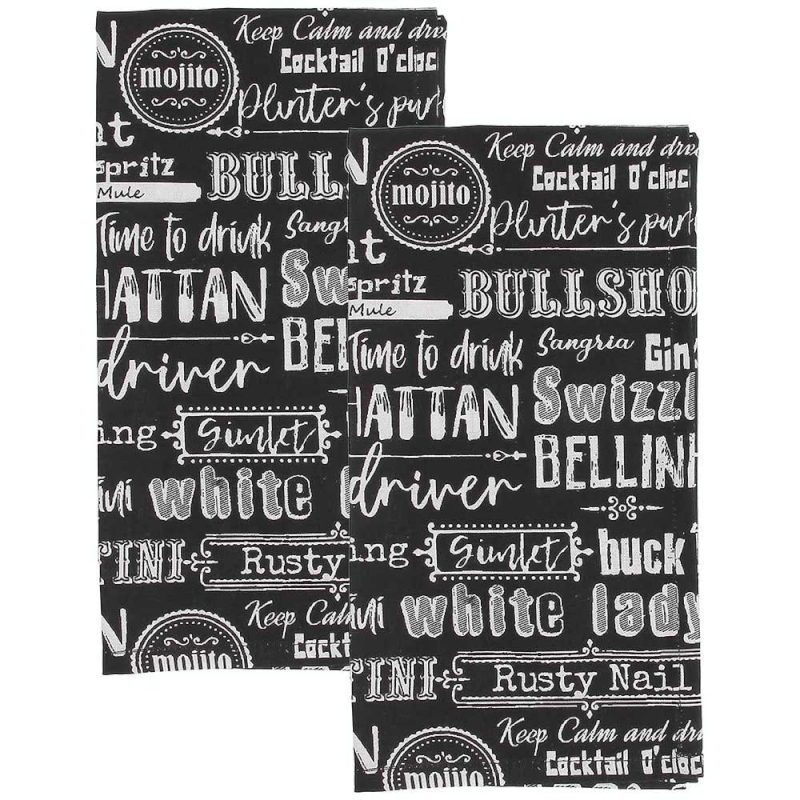 Keep Calm and dri
Cocktail O'cloc
mojito
Plinter's pun
spritz
Mule
BULLS
Time to drink
Sang
HATTAN
Sw
driver
BEL
ing
Gimlet
ini
white l
TINI
Rusty
Keep Cal
Cockt
mojito
Keep Calm and dre
Cocktail O'cloc
mojito
Plinter's pun
spritz
Mule
BULLSHO
Time to drink
Sangria
Gin
HATTAN
Swizzl
driver
BELLIN
ing
Gimlet
buck
ini
white lady
TINI
Rusty Nail
Keep Calm and dri
Cocktail O'cloc
mojito